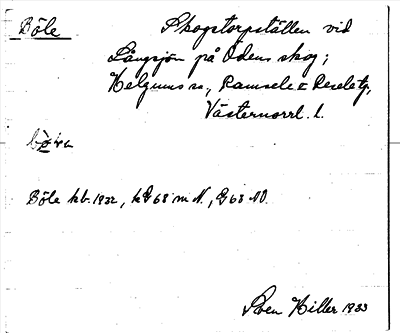 Böle Skogstorpställen vid
Långsjön på Ödens skog;
Helgums sn, Ramsele o Resele tg,
Västernorrl. l.
Böle kb. 1932, kG 68 m N., G 68 NO.
Sven Hiller 1933